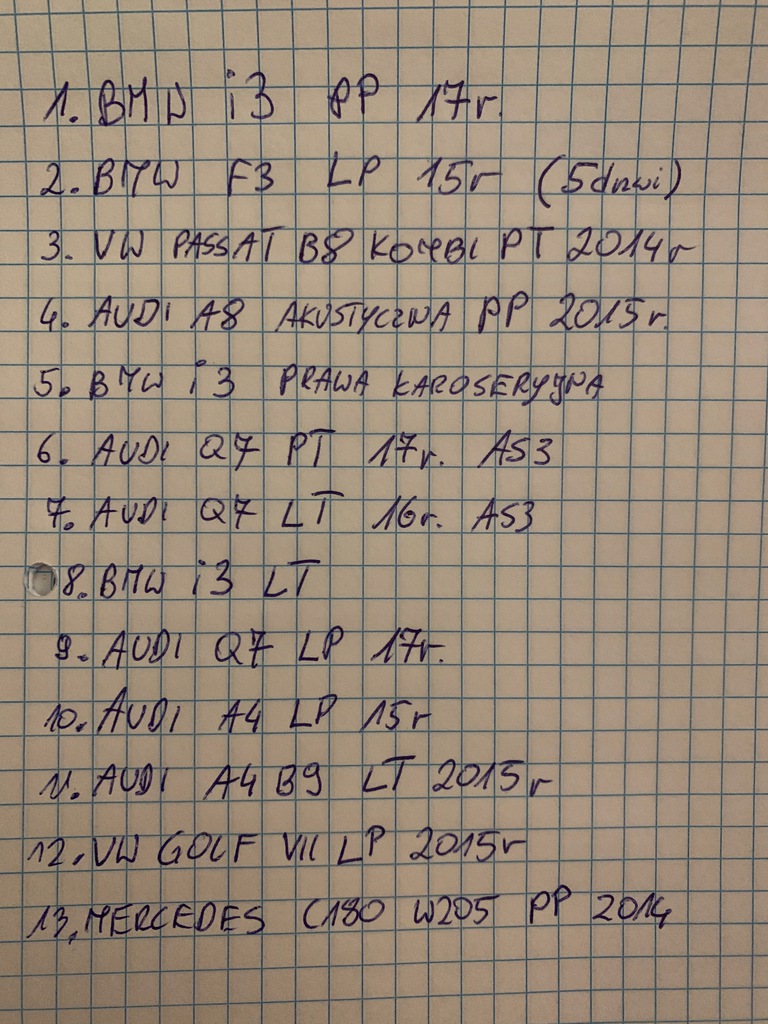 1. BMW i3 PP 17r.
2. BMW F3 LP 15r (5drzwi)
3. VW PASSAT B8 KOMBI PT 2014r
4. AUDI A8 AKUSTYCZNA PP 2015r.
5. BMW i3 PRAWA KAROSERYJNA
6. AUDI Q7 PT 17r. AS3
7. AUDI Q7 LT 16r. AS3
8. BMW i3 LT
9. AUDI Q7 LP 17r.
10. AUDI A4 LP 15r
11. AUDI A4 B9 LT 2015r
12. VW GOLF VII LP 2015r
13, MERCEDES C180 W205 PP 2014